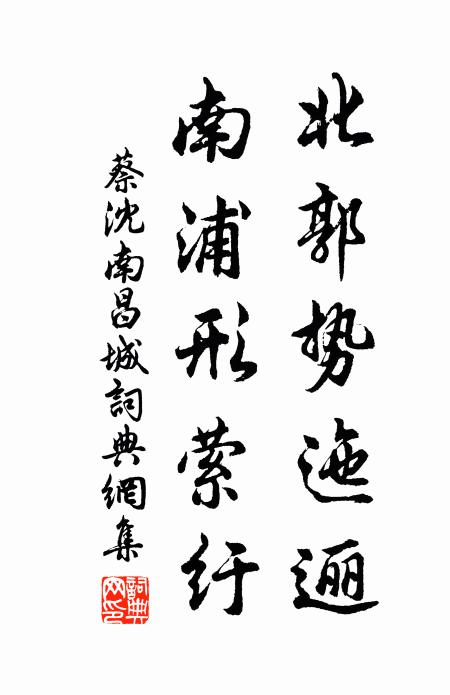 北郭势迤逦
南浦形萦纡
蔡沈南昌城詞典網集
詞典網印